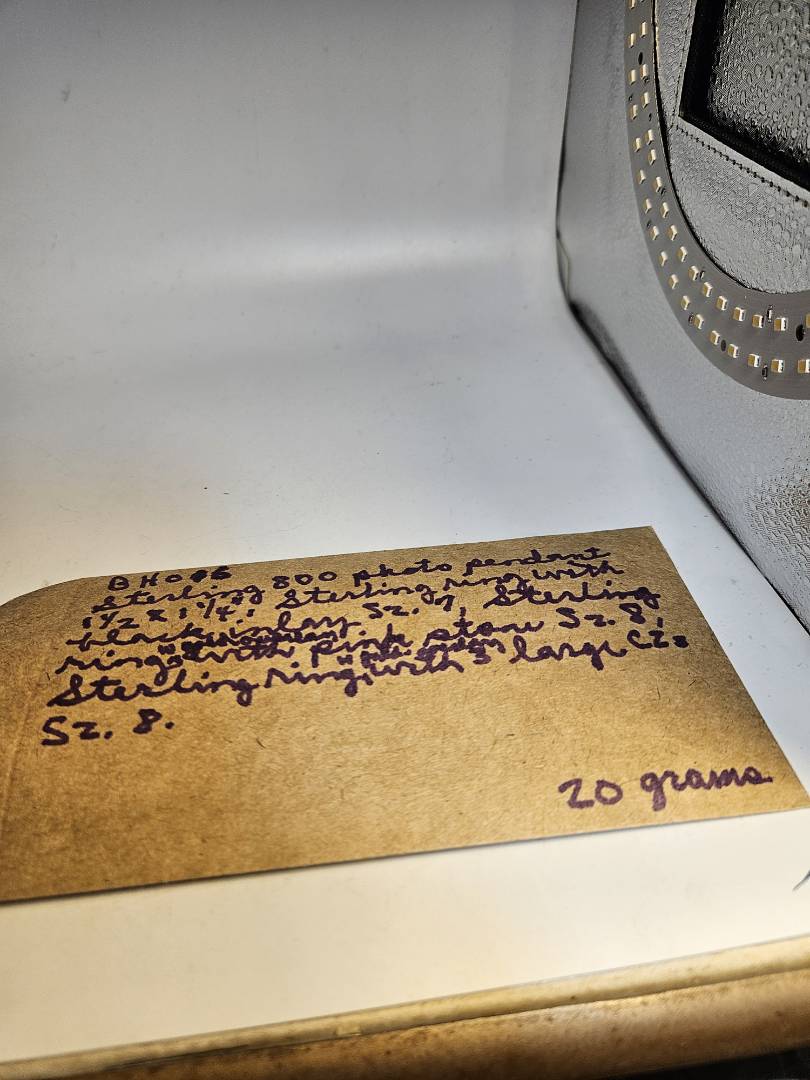 BH086
Sterling 800 photo pendant
1½ x 1¼", Sterling ring with
black inlay Sz. 7, Sterling
ring with pink stone Sz. 8,
Sterling ring, with 3 large CZs
Sz. 8.
20 grams